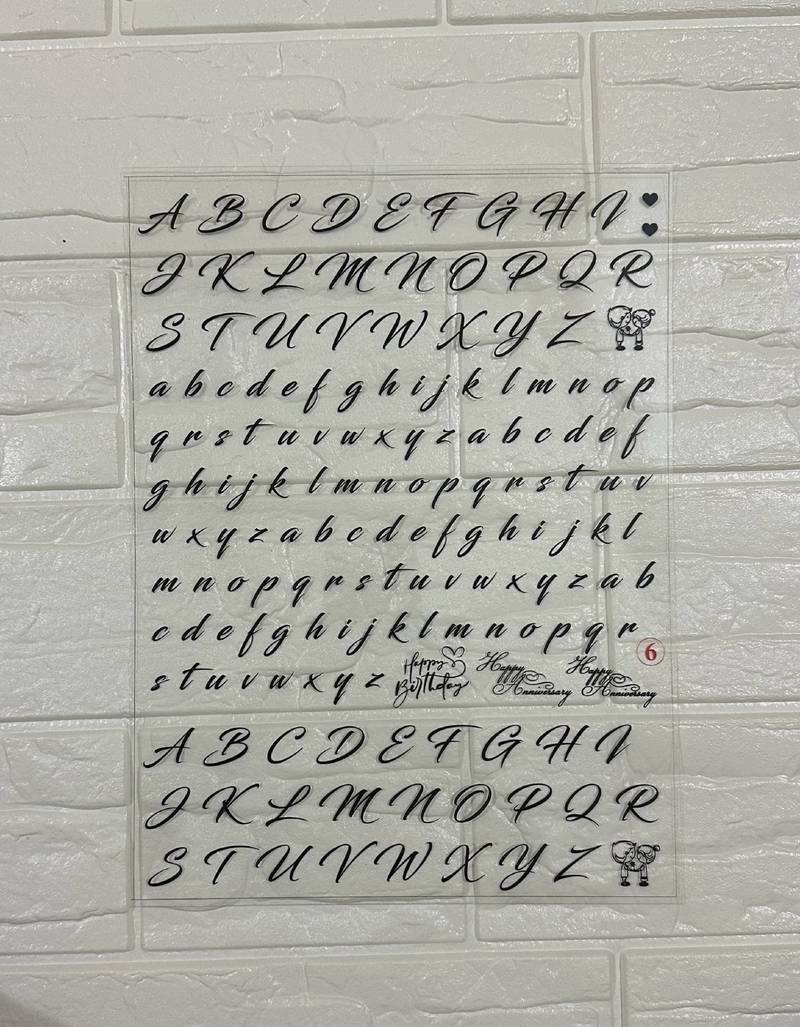 A B C D E F G H I
J K L M N O P Q R
S T U V W X Y Z
a b c d e f g h i j k l m n o p
q r s t u v w x y z a b c d e f
g h i j k l m n o p q r s t u v
w x y z a b c d e f g h i j k l
m n o p q r s t u v w x y z a b
c d e f g h i j k l m n o p q r
6
s t u v w x y z
Happy
Birthday
Happy
Anniversary
Happy
Anniversary
A B C D E F G H I
J K L M N O P Q R
S T U V W X Y Z